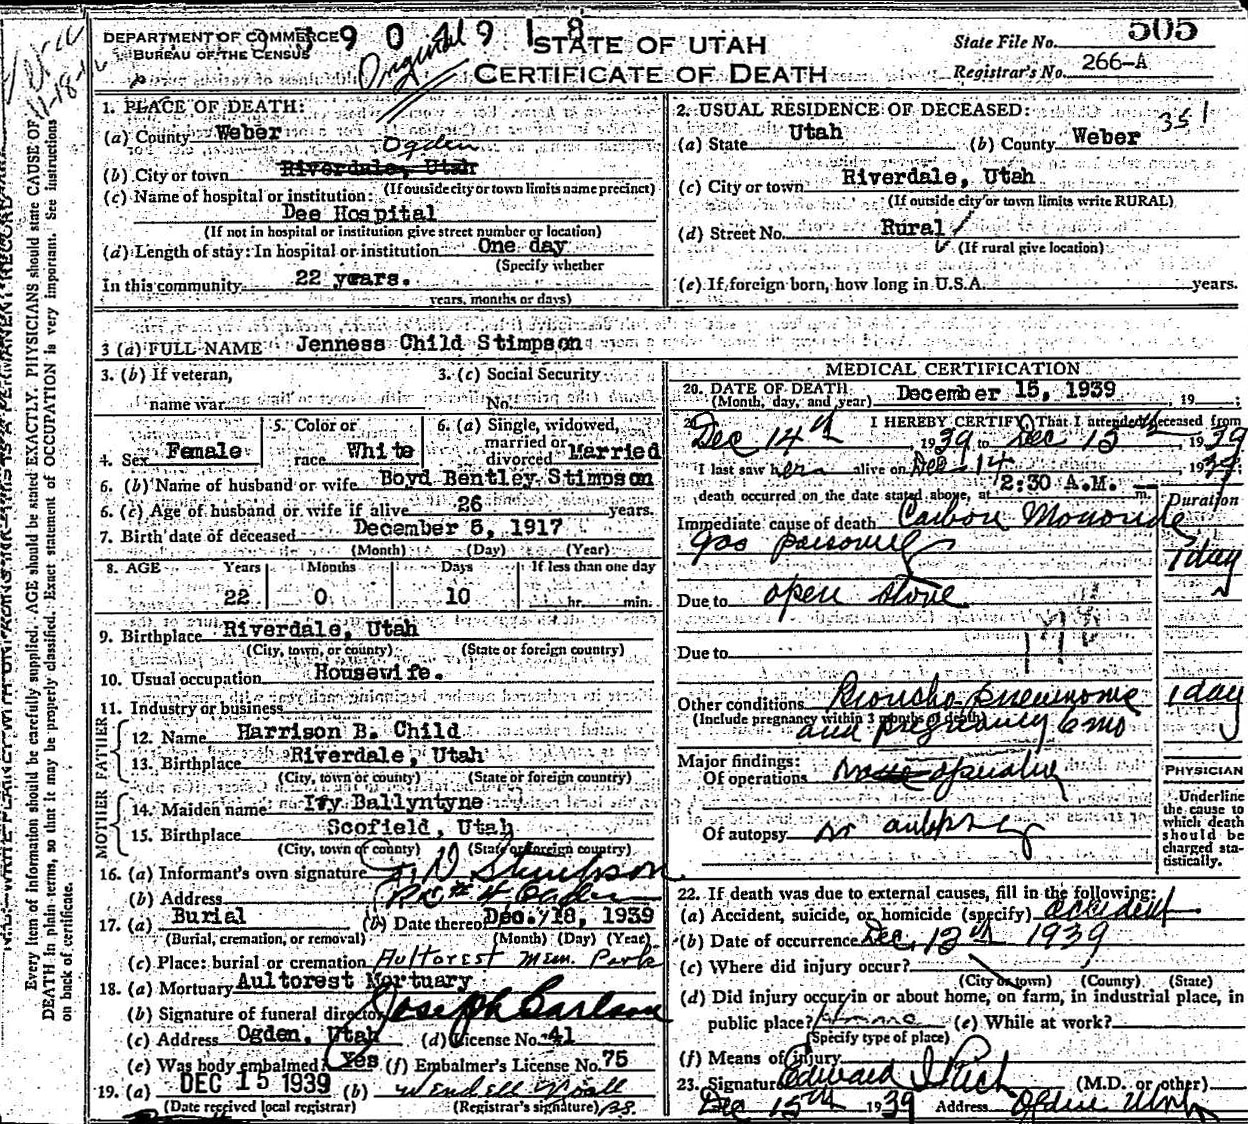 DEPARTMENT OF COMMERCE
BUREAU OF THE CENSUS
9 0 4 9 1 8
Original
STATE OF UTAH
CERTIFICATE OF DEATH
State File No. 505
Registrar's No. 266-A
1. PLACE OF DEATH:
(a) County Weber
Ogden
(b) City or town Riverdale, Utah
(If outside city or town limits name precinct)
(c) Name of hospital or institution:
Dee Hospital
(If not in hospital or institution give street number or location)
(d) Length of stay: In hospital or institution One day
(Specify whether
In this community 22 years.
years, months or days)
2. USUAL RESIDENCE OF DECEASED: 351
(a) State Utah (b) County Weber
(c) City or town Riverdale, Utah
(If outside city or town limits write RURAL)
(d) Street No. Rural
(If rural give location)
(e) If foreign born, how long in U.S.A. years.
3 (a) FULL NAME Jenness Child Stimpson
3. (b) If veteran,
name war
3. (c) Social Security
No.
4. Sex Female
5. Color or
race White
6. (a) Single, widowed,
married or
divorced Married
6. (b) Name of husband or wife Boyd Bentley Stimpson
6. (c) Age of husband or wife if alive 26 years.
7. Birth date of deceased December 5, 1917
(Month) (Day) (Year)
8. AGE Years Months Days If less than one day
22 0 10 hr. min.
9. Birthplace Riverdale, Utah
(City, town, or county) (State or foreign country)
10. Usual occupation Housewife.
11. Industry or business
FATHER
12. Name Harrison B. Child
13. Birthplace Riverdale, Utah
(City, town or county) (State or foreign country)
MOTHER
14. Maiden name Ivy Ballyntyne
15. Birthplace Scofield, Utah
(City, town or county) (State or foreign country)
16. (a) Informant's own signature Stimpson
(b) Address # 4 Ogden
17. (a) Burial (b) Date thereof Dec. 18, 1939
(Burial, cremation, or removal) (Month) (Day) (Year)
(c) Place: burial or cremation Aultorest Mem. Park
18. (a) Mortuary Aultorest Mortuary
(b) Signature of funeral director Joseph Carlson
(c) Address Ogden, Utah (d) License No. 41
(e) Was body embalmed? Yes (f) Embalmer's License No. 75
19. (a) DEC 15 1939 (b) Wendell
(Date received local registrar) (Registrar's signature)
MEDICAL CERTIFICATION
20. DATE OF DEATH December 15, 1939
(Month, day, and year) , 19 ;
I HEREBY CERTIFY, That I attended deceased from
Dec 14th 1939 to Dec 15th 1939
I last saw her alive on Dec 14, 1939;
death occurred on the date stated above, at 2:30 A.M. m.
Duration
Immediate cause of death Carbon Monoxide
gas poisoning
1 day
Due to open stove
Due to
178
Other conditions Broncho pneumonia 1 day
(Include pregnancy within 3 months of death)
and pregnancy 6 mo
Major findings:
Of operations operation
Of autopsy no autopsy
PHYSICIAN
Underline
the cause to
which death
should be
charged sta-
tistically.
22. If death was due to external causes, fill in the following:
(a) Accident, suicide, or homicide (specify) accident
(b) Date of occurrence Dec. 1939
(c) Where did injury occur?
(City or town) (County) (State)
(d) Did injury occur in or about home, on farm, in industrial place, in
public place? Home (e) While at work?
(Specify type of place)
(f) Means of injury
23. Signature Edward I Rich (M.D. or other)
Dec 15th 1939 Address Ogden Utah
Every item of information should be carefully supplied. AGE should be stated EXACTLY. PHYSICIANS should state CAUSE OF
DEATH in plain terms, so that it may be properly classified. Exact statement of OCCUPATION is very important. See instructions
on back of certificate.